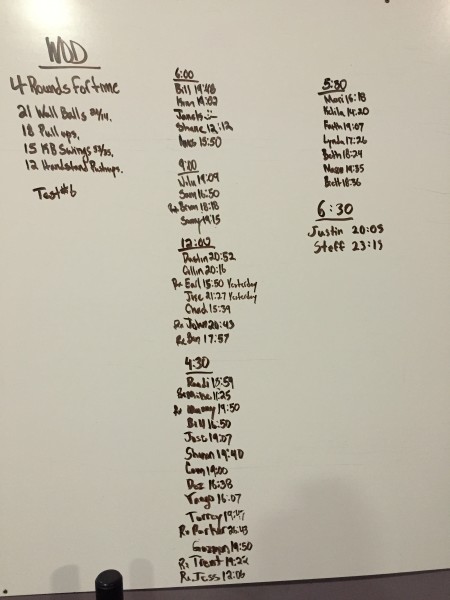 WOD
4 Rounds For time
21 Wall Balls
18 Pull ups,
15 KB Swings
12 Handstand Pushups.
Test #6
6:00
Bill 19:48
19:02
Shane 12:12
15:50
9:00
19:09
Sam 16:50
Rx Brian 18:18
Sammy 19:15
12:00
Dustin 20:52
Collin 20:16
Rx Earl 15:50 Yesterday
Jose 21:27 Yesterday
Chad 15:39
Rx John 20:43
Rx Ben 17:57
4:30
Randi
Rx Mike 11:25
19:50
Bill 16:50
Jose 19:07
Sharon 19:40
19:00
Doz 16:38
16:07
Torrey
Rx Parker 26:43
19:50
Rx Trent
Rx Jess 12:06
5:30
15:18
14:20
Faith 19:07
Lynda 17:26
Beth 18:24
19:35
Brett 18:36
6:30
Justin 20:05
Steff 23:15